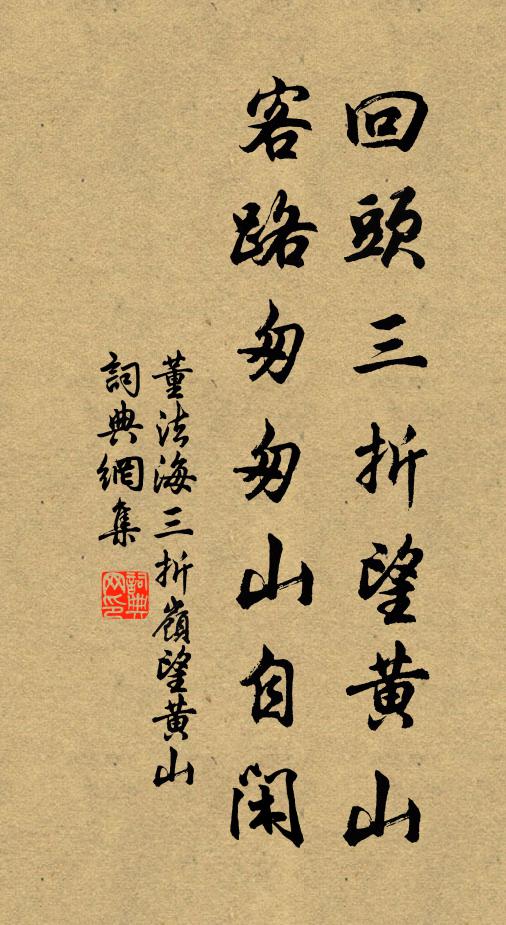 回頭三折望黃山
客路匆匆山自閑
董法海三折嶺望黃山
詞典網集
詞典网印